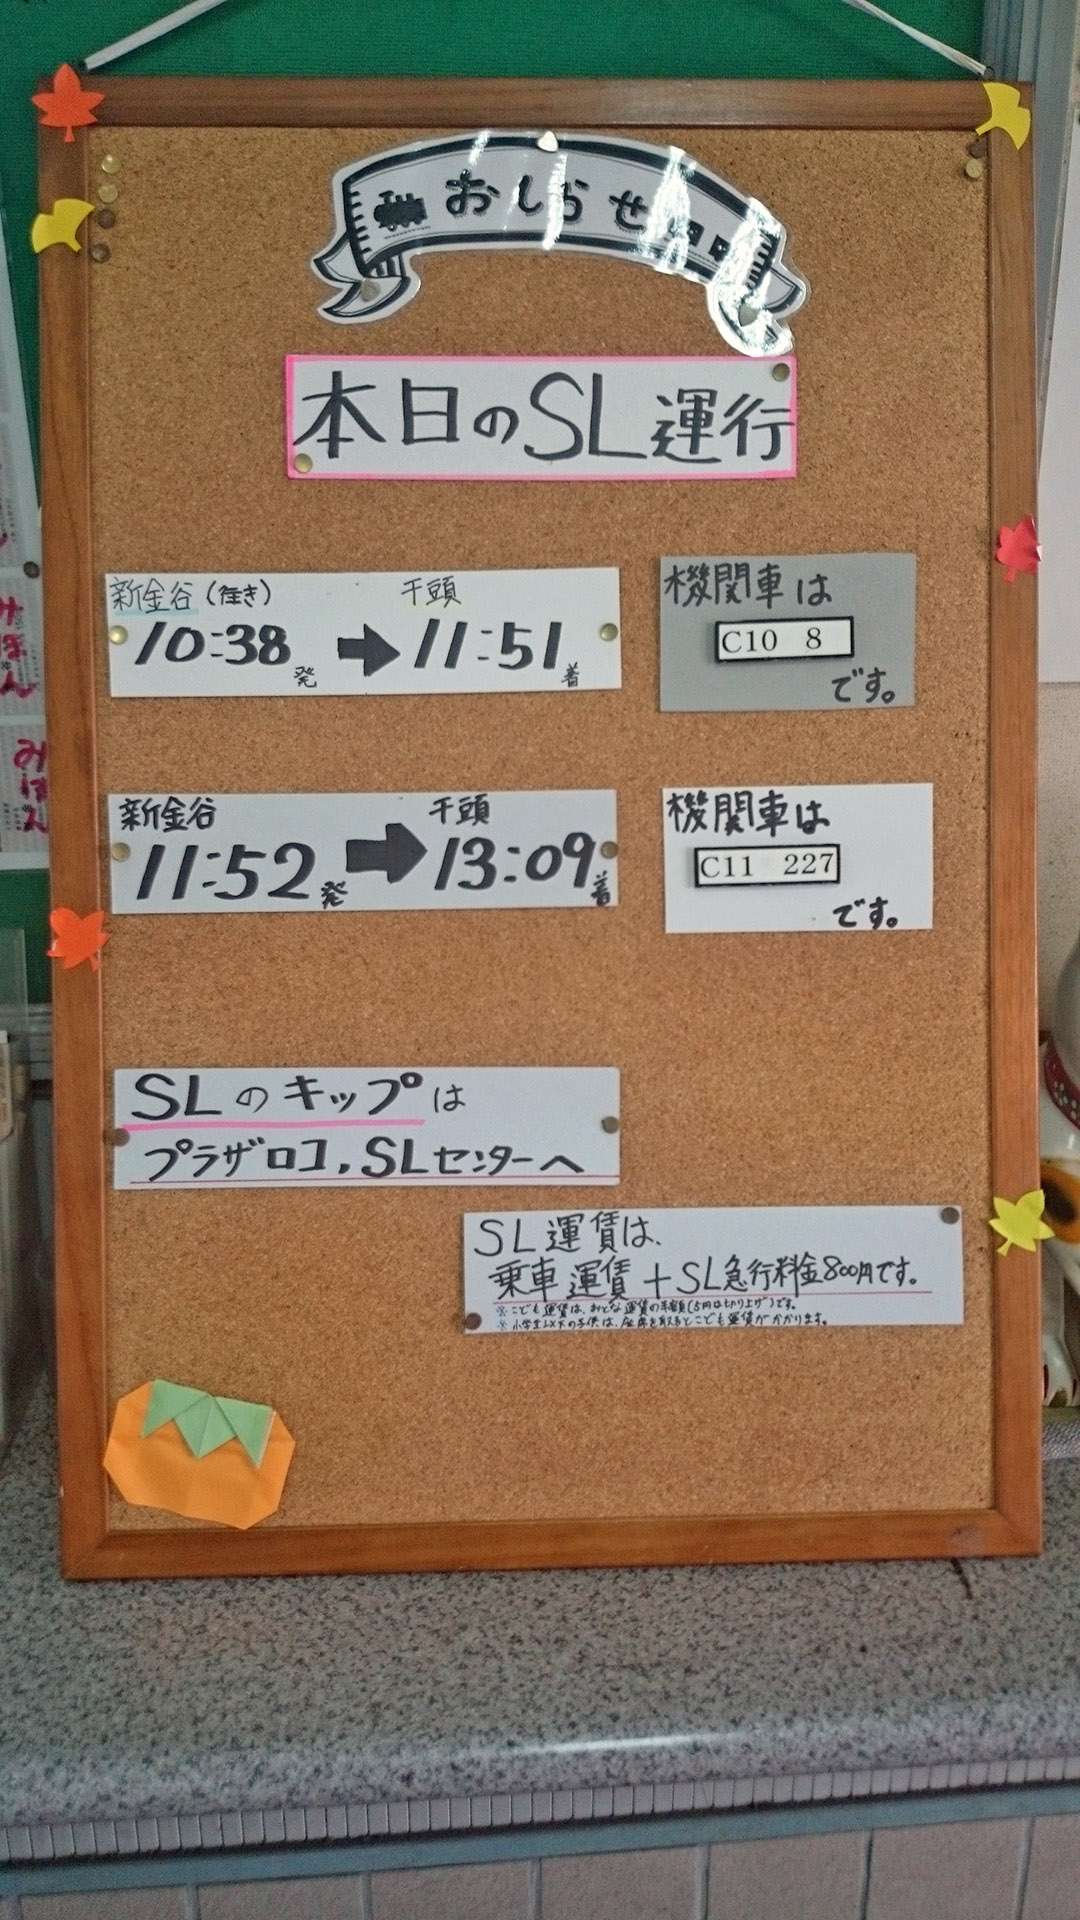 おしらせ
本日のSL運行
新金谷(往き) 千頭
10:38発 → 11:51着
機関車は
C10 8
です。
新金谷 千頭
11:52発 → 13:09着
機関車は
C11 227
です。
SLのキップは
プラザロコ,SLセンターへ
SL運賃は、
乗車運賃+SL急行料金800円です。
※こども運賃は、おとな運賃の半額(5円は切り上げ)です。
※小学生以下の子供は、座席を取るとこども運賃がかかります。
みほん
みほん